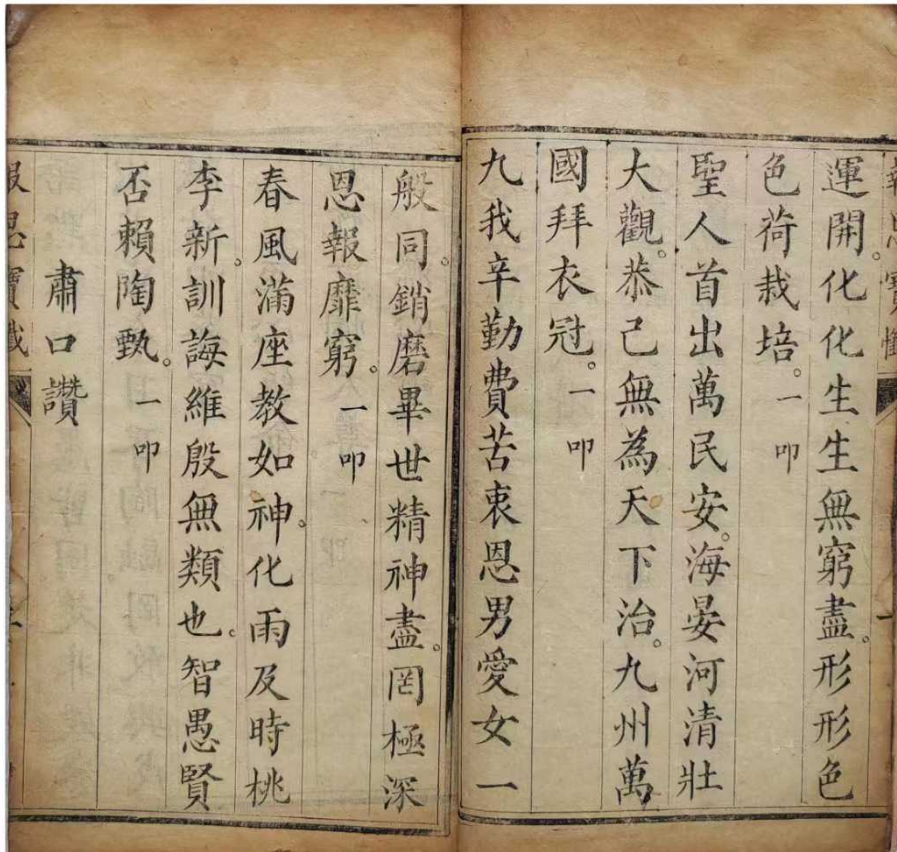 報恩寶懺
運開。化化生生無窮盡。形形色
色荷栽培。一叩
聖人首出萬民安。海晏河清壯
大觀。恭己無為天下治。九州萬
國拜衣冠。一叩
九我辛勤費苦衷恩男愛女一
般同。銷磨畢世精神盡。罔極深
恩報靡窮。一叩
春風滿座教如神。化雨及時桃
李新。訓誨維殷無類也。智愚賢
否賴陶甄。一叩
肅口讚
報恩寶懺